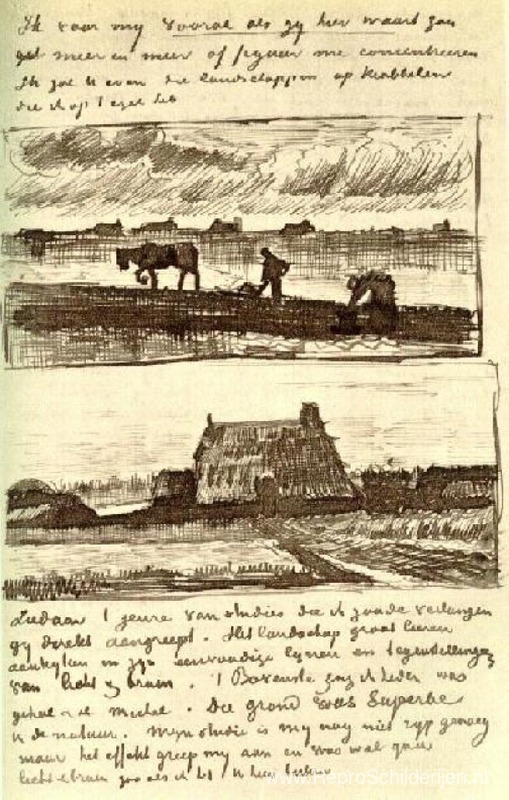 Ik voor my vooral als gy hier waart zou
meer en meer op figuur me concentreeren
Ik zal U even de landschappen op krabbelen
die ik op l ezel heb
Ziedaar l genre van studies die ik zoude verlangen
gy direkt aangreept. Het landschap groot leeren
aankyken in zyn eenvoudige lynen en tegenstellingen
van licht & bruin. l Bovenste zag ik heden was
geheel Michel. Die grond was Superbe
in de natuur. Myn studie is my nog niet ryp genoeg
maar het effekt greep my aan en was wel qua
licht & bruin zoo als ik het U hier
www.ReproSchilderijen.nl